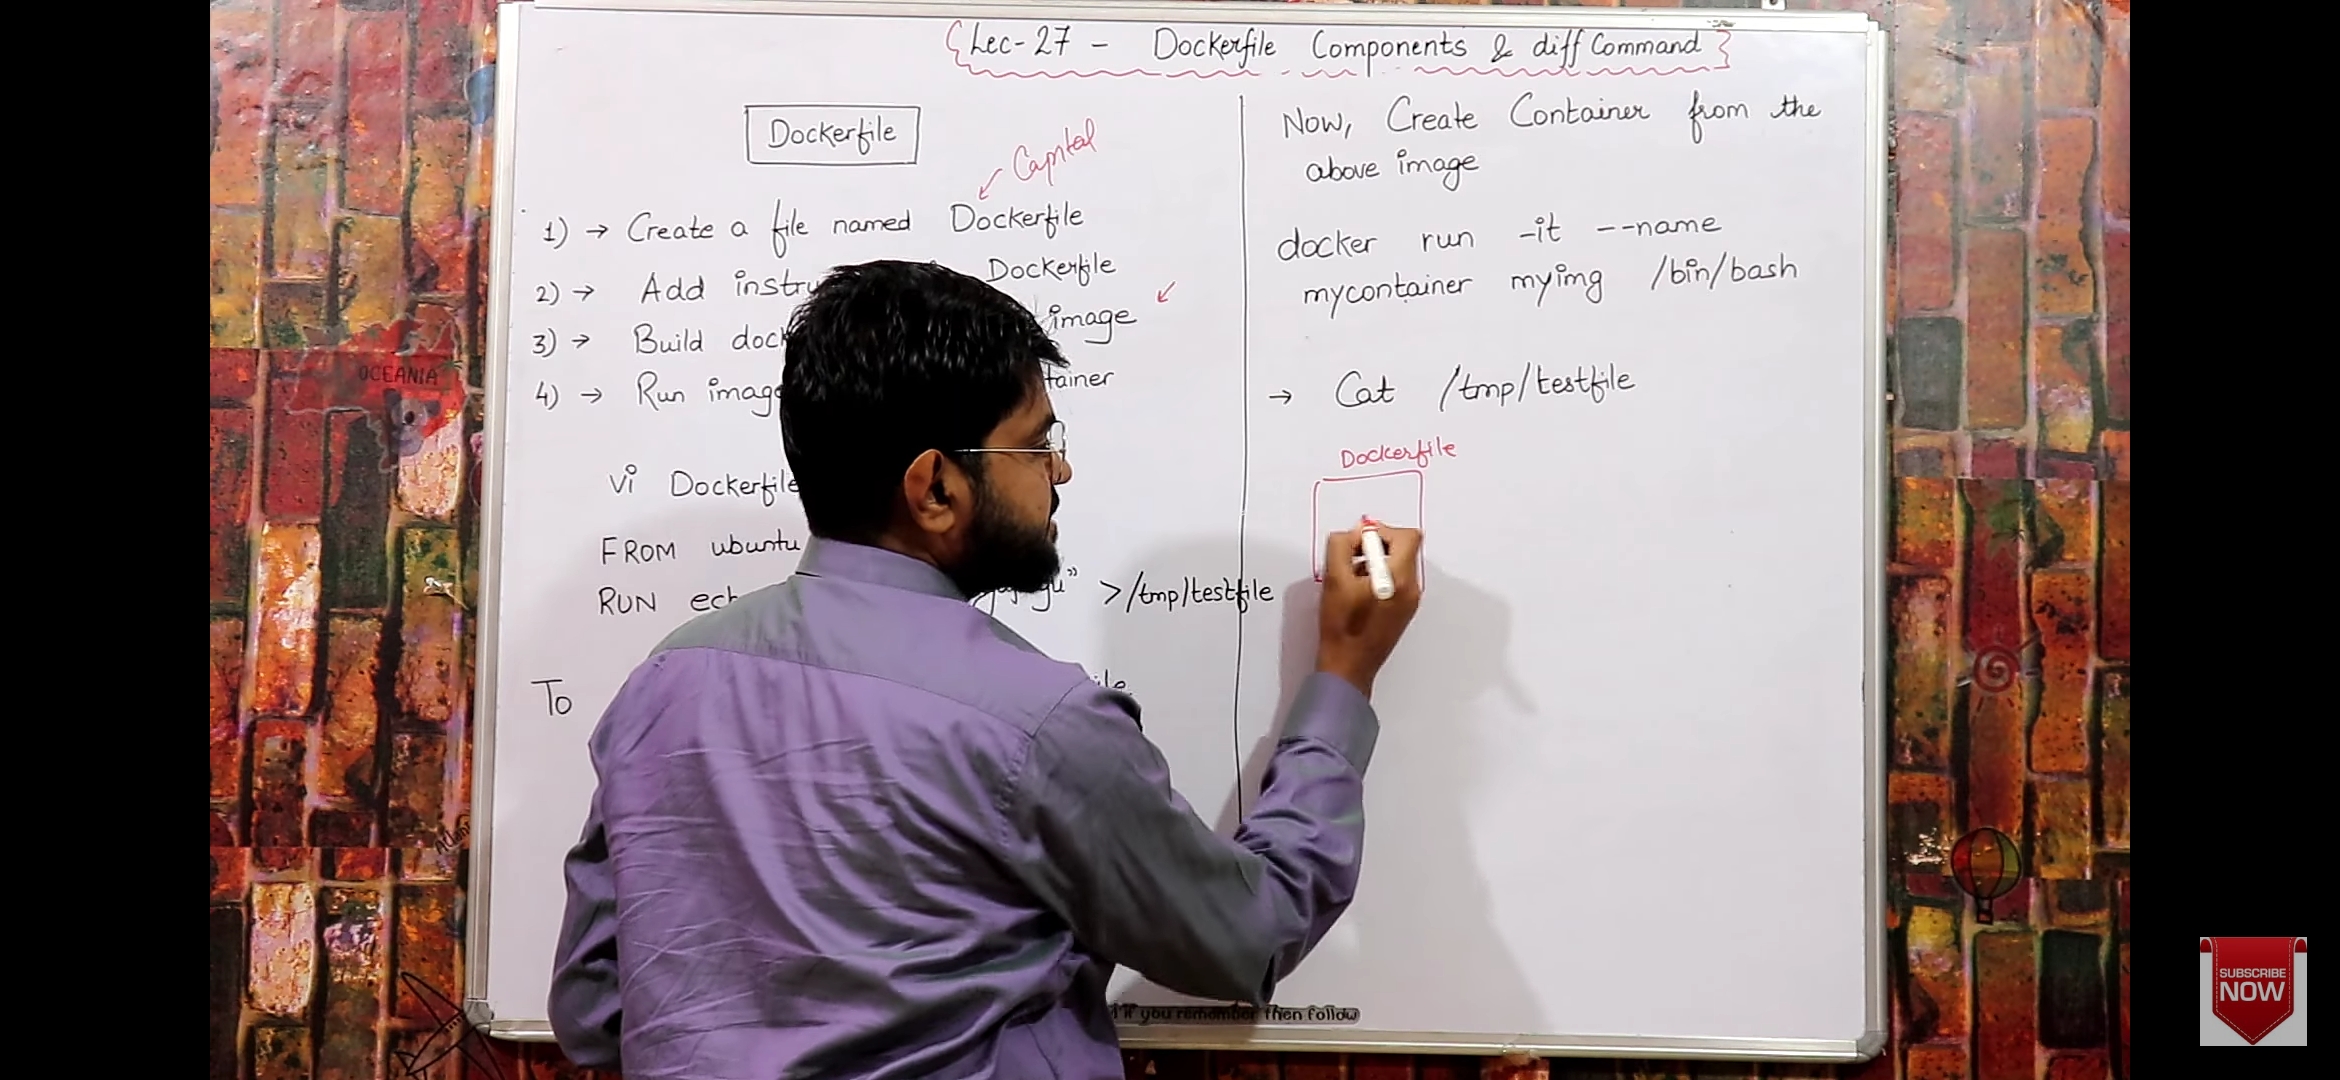 {Lec-27 - Dockerfile Components & diff Command}
Dockerfile
Capital
1) → Create a file named Dockerfile
2) → Add Dockerfile
3) → Build image
4) → Run
vi Dockerfile
FROM ubuntu
RUN >/tmp/testfile
To
Now, Create Container from the
above image
docker run -it --name
mycontainer myimg /bin/bash
→ Cat /tmp/testfile
Dockerfile
OCEANIA
if you remember then follow
SUBSCRIBE
NOW